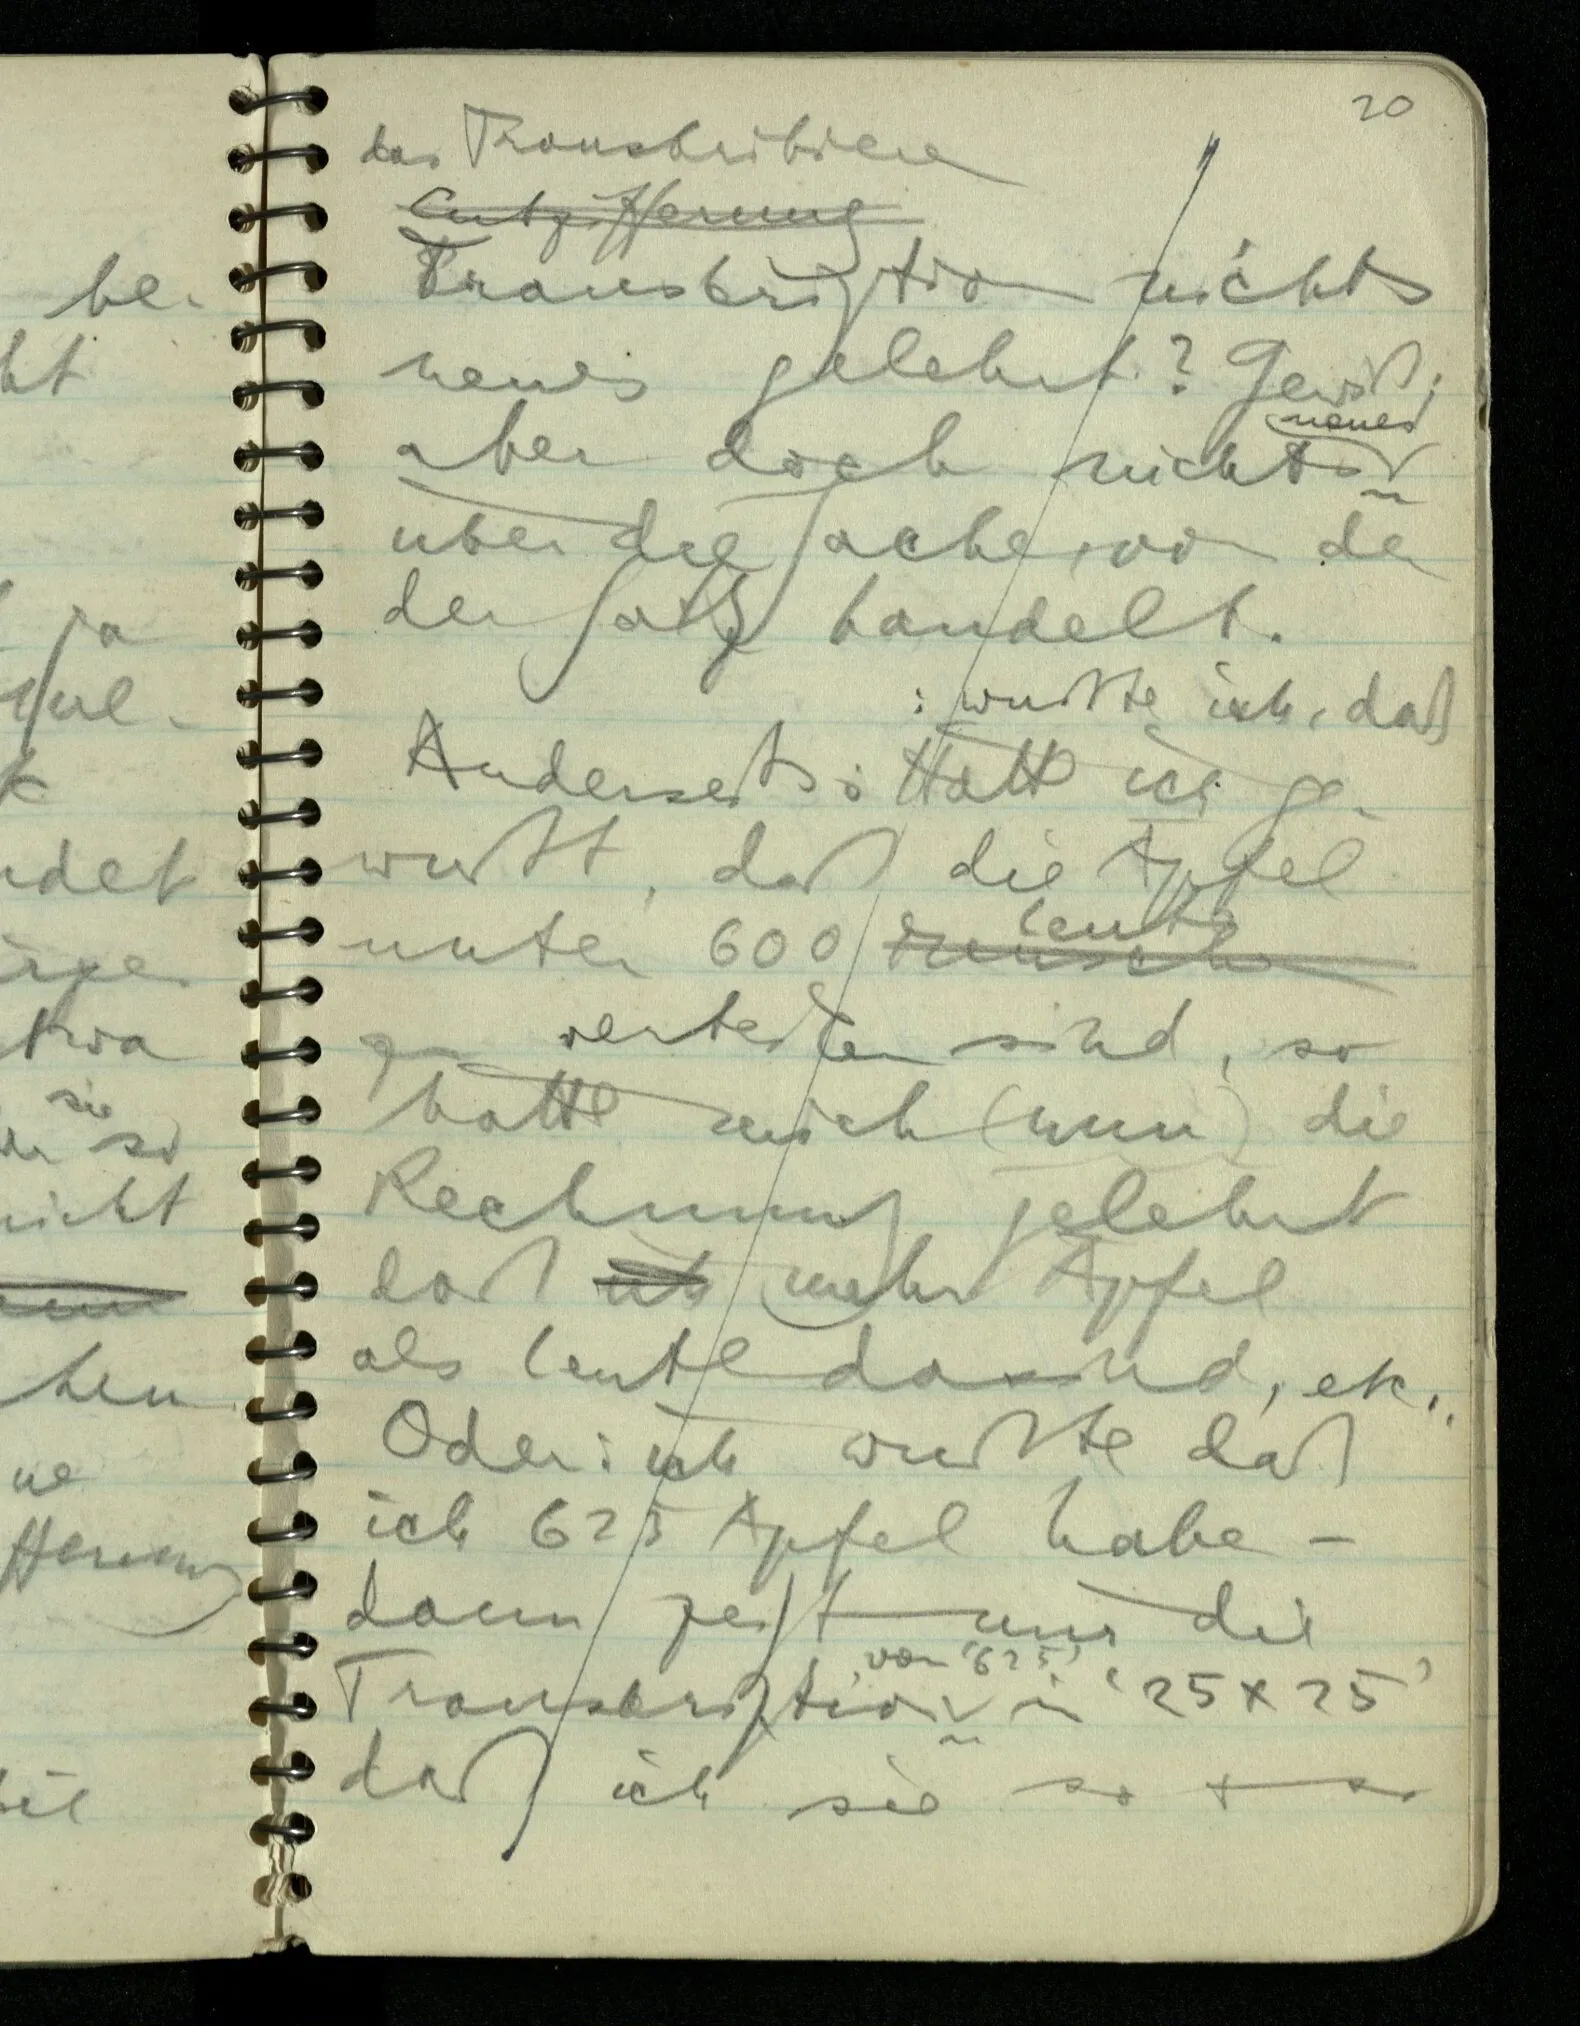 20
das Transkribieren
Entzifferung
Transkription nichts
neues gelehrt? Gewiß;
neues
aber doch nichts
über die Sache, von der
der Satz handelt.
: wußte ich, daß
Anderseits: Hätte ich ge-
wußt, daß die Äpfel
Leute
unter 600
zu verteilen sind, so
hätte mich (nun) die
Rechnung gelehrt
daß ich mehr Äpfel
als Leute da sind, etc..
Oder: ich wußte daß
ich 625 Äpfel habe –
dann zeigt mir die
von '625'
Transkription in '25 x 25'
daß ich sie so + so
be-
ht
ja
k
ndet
twa
sie
so
nicht
hen
ne